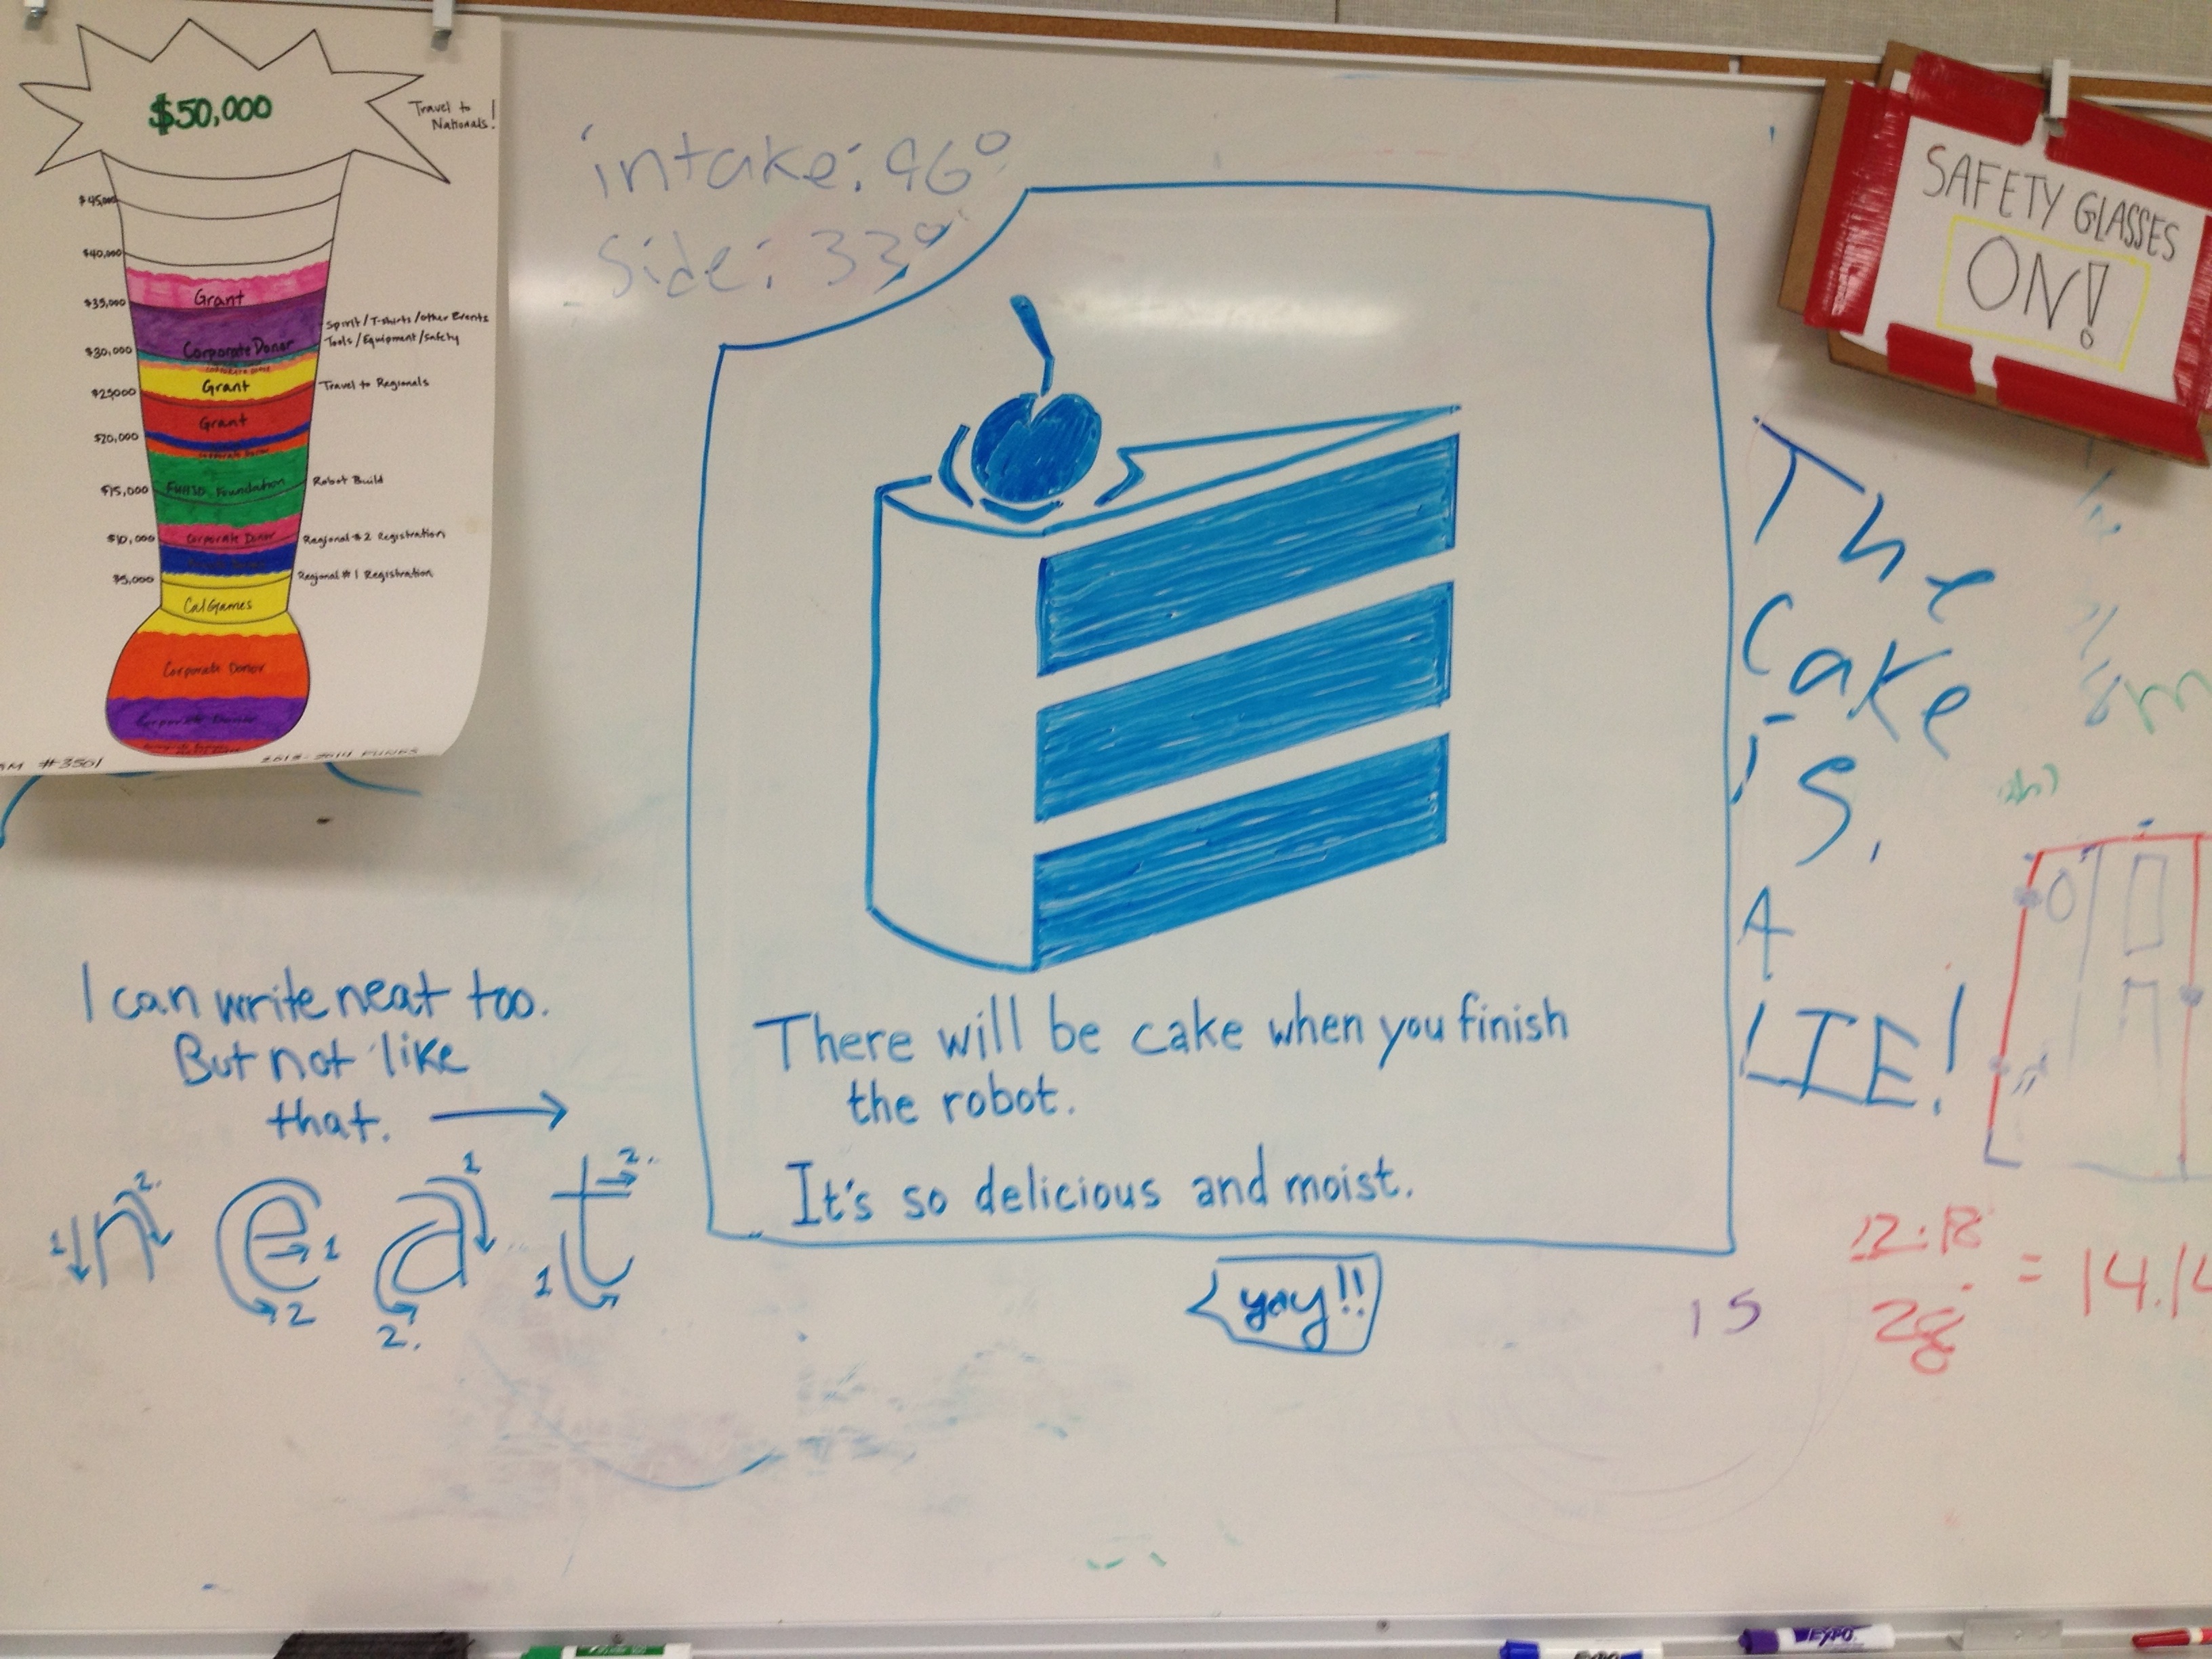 $50,000
Travel to
Nationals!
$45,000
$40,000
Grant
$35,000
Corporate Donor
Spirit/T-shirts/other Events
Tools/Equipment/Safety
$30,000
Grant
Travel to Regionals
$25,000
Grant
$20,000
Corporate Donor
FUHSD Foundation
Robot Build
$15,000
Corporate Donor
Regional #2 Registration
$10,000
Regional #1 Registration
$5,000
CalGames
Corporate Donor
Corporate Donor
#3501
2013-2014 FUNDS
intake: 46°
Side: 33°
SAFETY GLASSES
ON!
There will be cake when you finish
the robot.
It's so delicious and moist.
yay!!
The
Cake
is.
A
LIE!
I can write neat too.
But not like
that.
1 n 2.
e 1 2
a 1 2.
t 1 2.
15
28
= 14.14
EXPO
EXPO